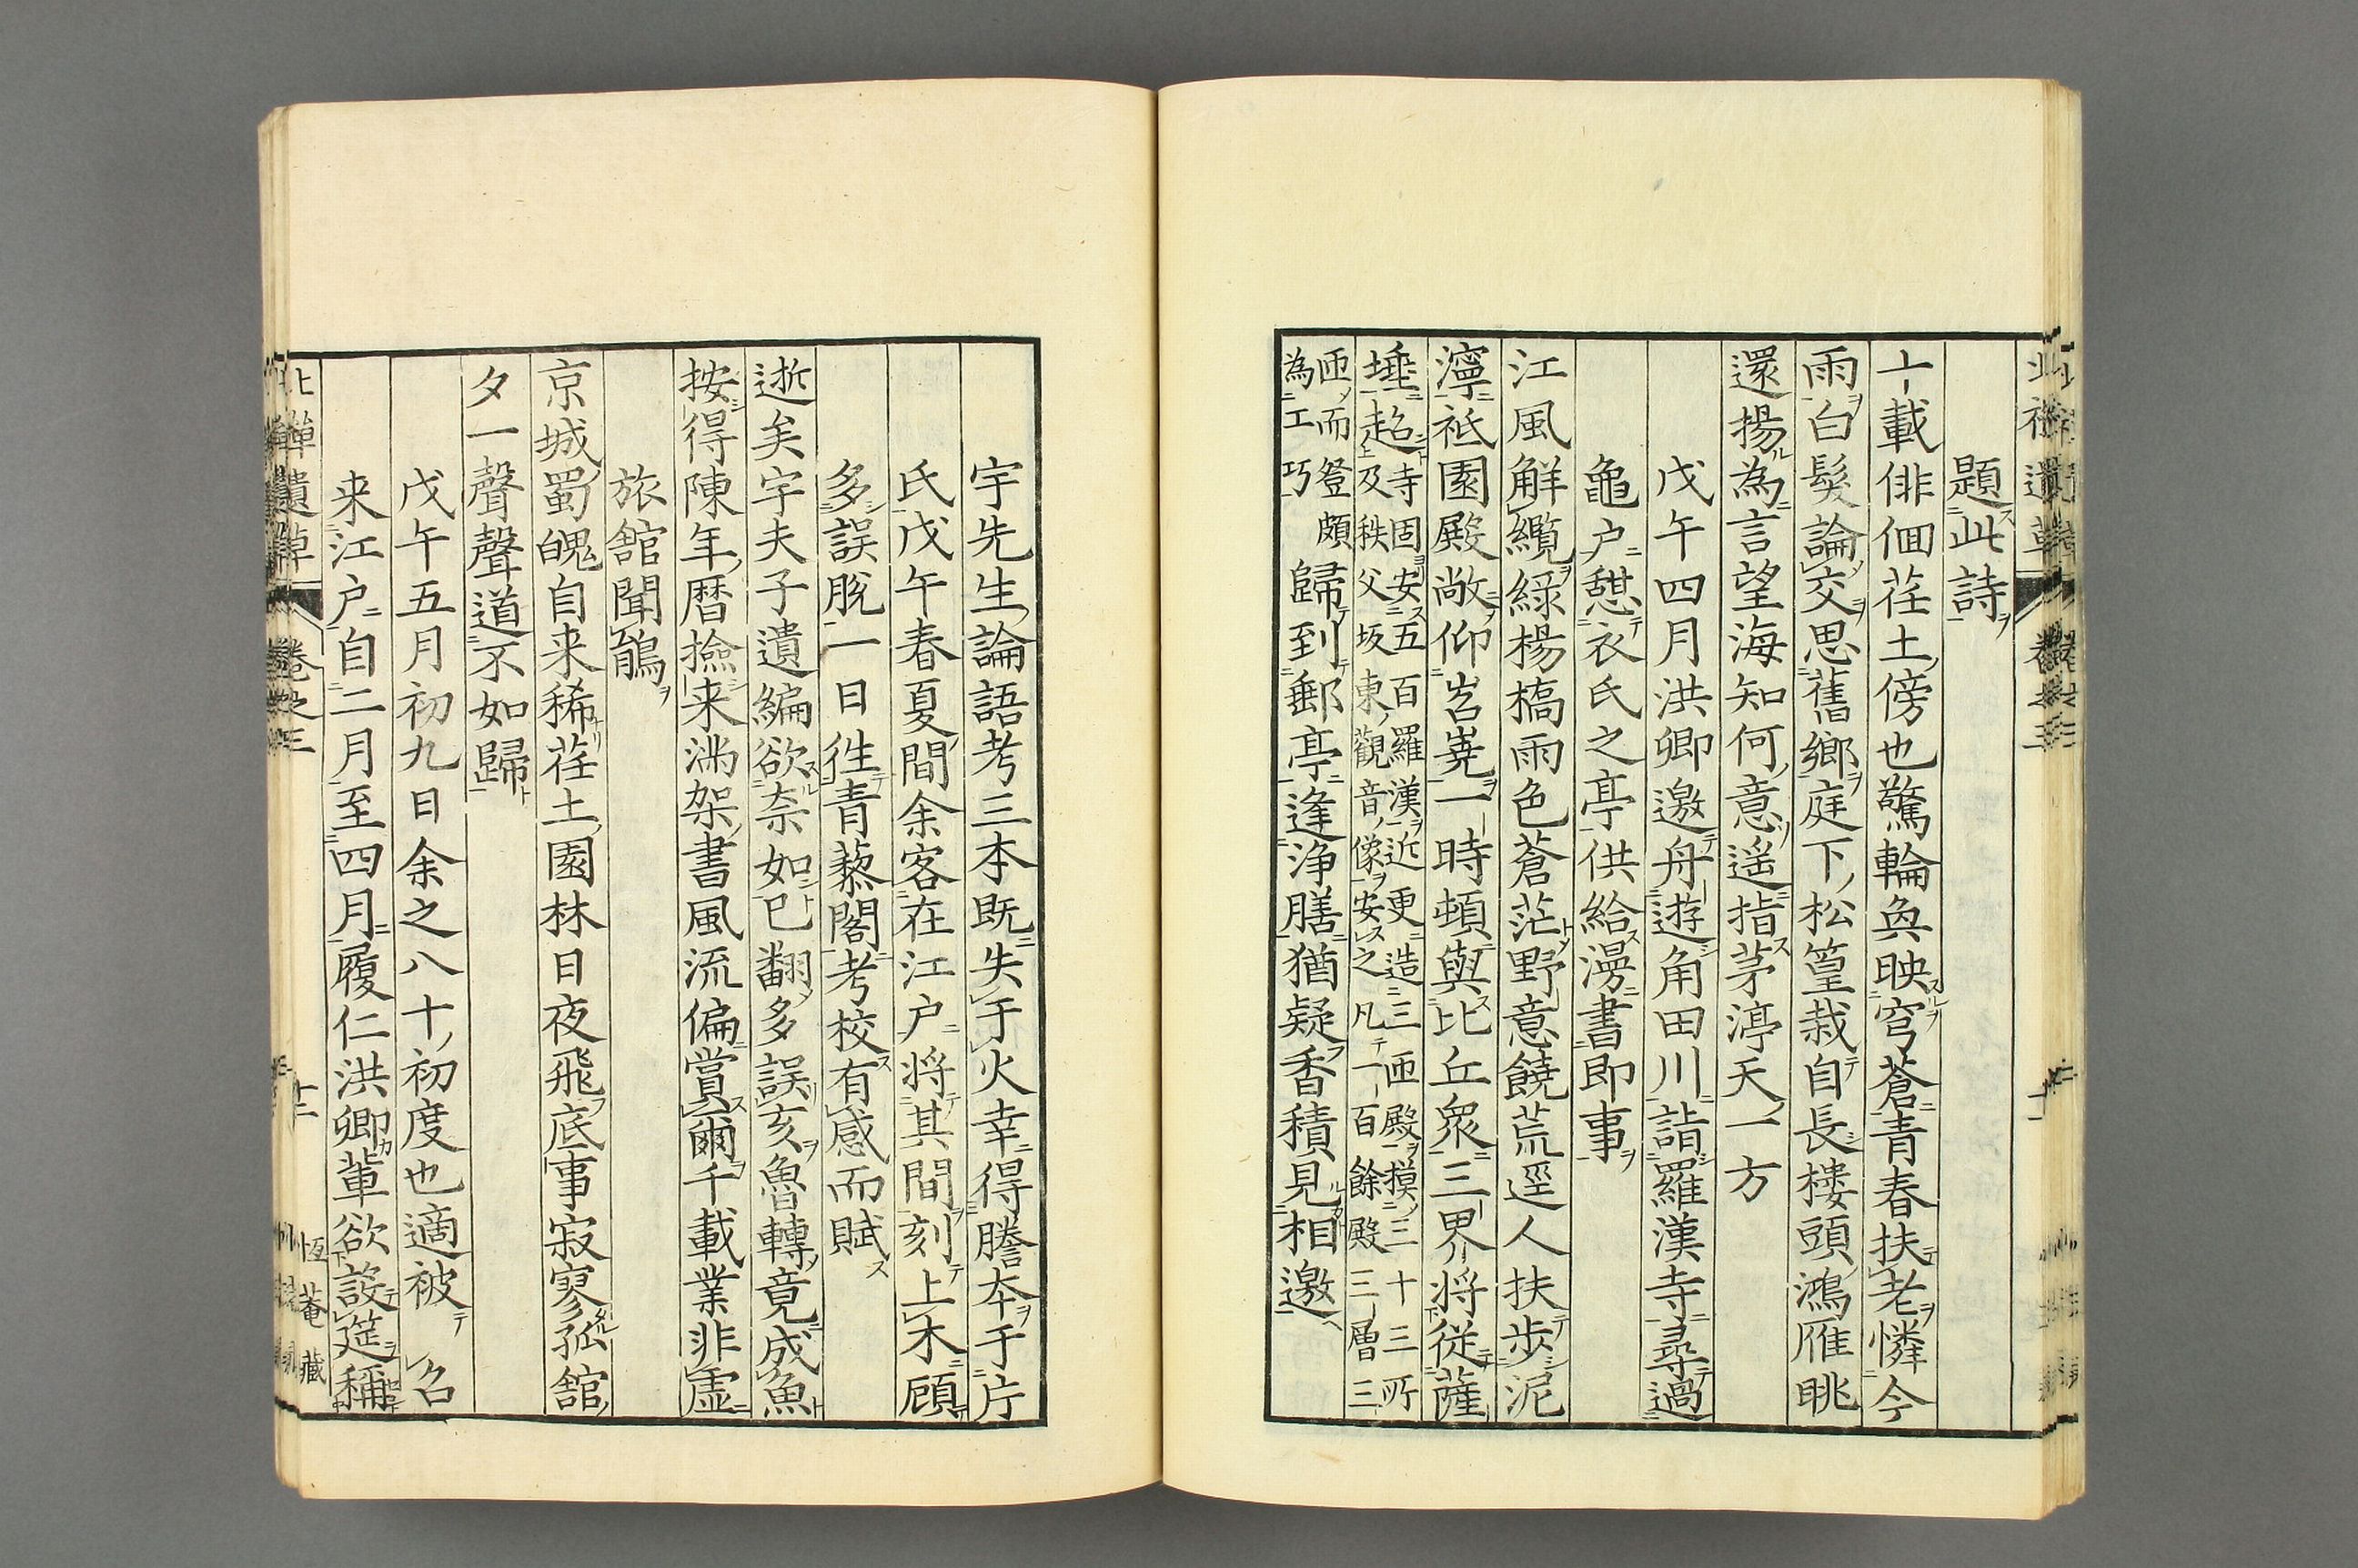 題此詩
十載俳佪荏土傍也驚輪奐映穹蒼青春扶老憐今
雨白髮論交思舊鄉庭下松篁栽自長樓頭鴻雁眺
還揚為言望海知何意遥指茅渟天一方
戊午四月洪卿邀舟遊角田川詣羅漢寺尋過
龜戸憇衣氏之亭供給漫書即事
江風觧纜綠楊橋雨色蒼茫野意饒荒逕人扶歩泥
濘祗園殿敞仰岧嶤一時頓與比丘衆三界将従薩
埵超寺固安五百羅漢近更造三匝殿摸三十三所
及秩父坂東觀音像安之凡一百餘殿三層三
匝而登頗
為工巧
歸到郵亭逢浄膳猶疑香積見相邀
宇先生論語考三本既失于火幸得謄本于片
氏戊午春夏間余客在江戸将其間刻上木顧
多誤脱一日徃青藜閣考校有感而賦
逝矣宇夫子遺編欲奈如已翻多誤亥魯轉竟成魚
按得陳年暦撿来満架書風流偏賞爾千載業非虚
旅舘聞鵑
京城蜀魄自来稀荏土園林日夜飛底事寂寥孤舘
夕一聲聲道不如歸
戊午五月初九日余之八十初度也適被 召
来江戸自二月至四月履仁洪卿輩欲設筵稱
北禅遺草 卷之三 十二 恆菴藏